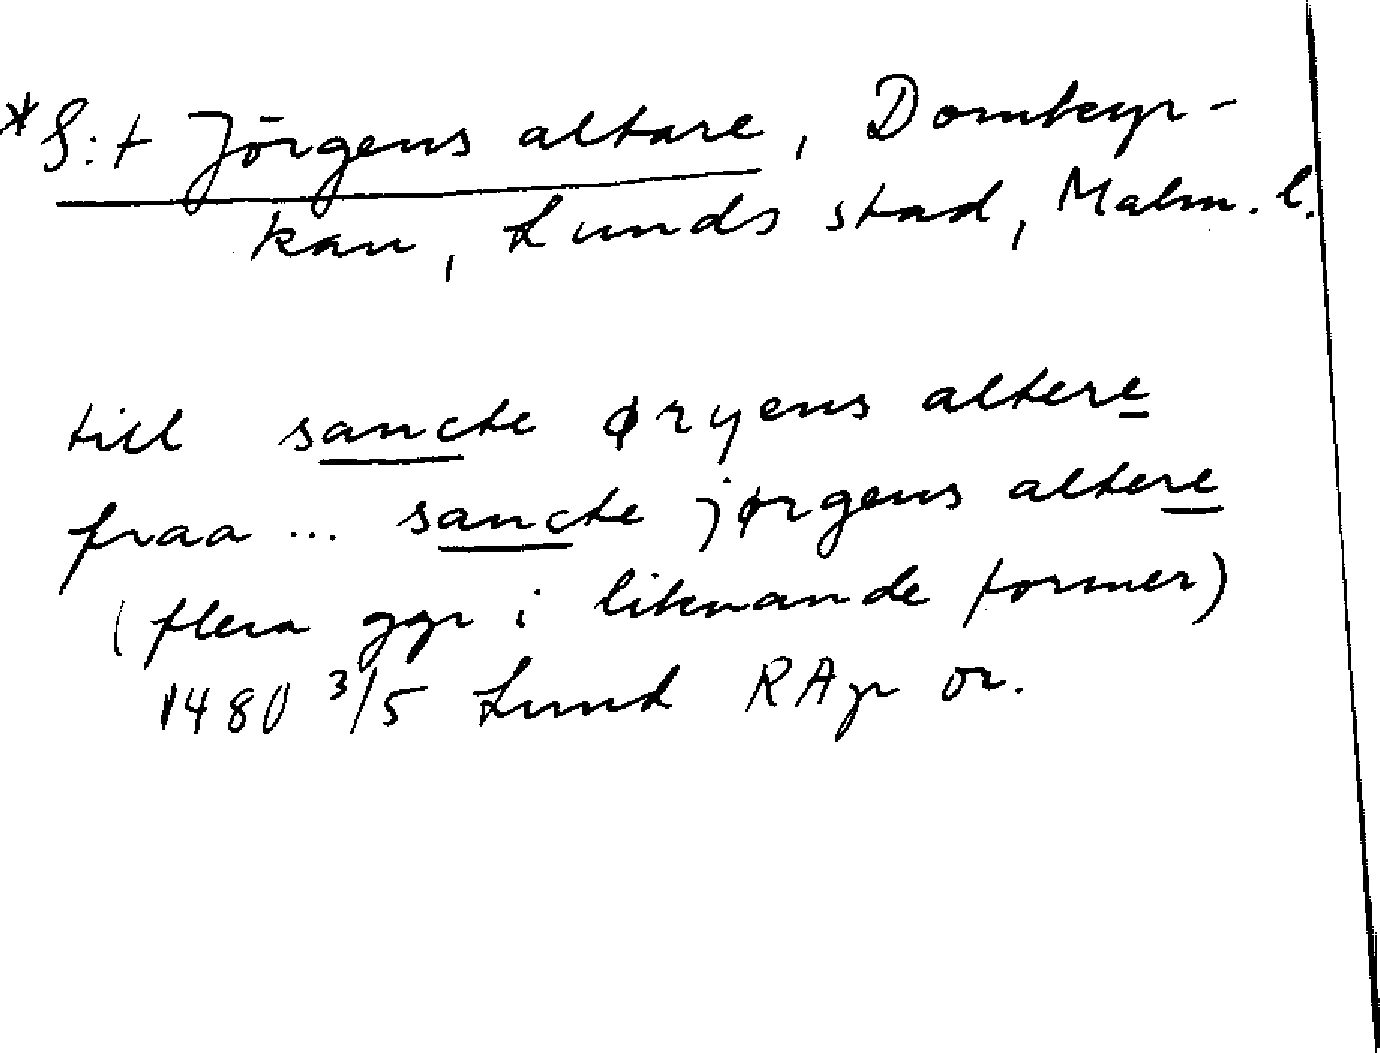 *S:t Jörgens altare, Domkyr-
kan, Lunds stad, Malm. l.
till sancte øryens altere
fraa ... sancte jørgens altere
(flera ggr i liknande former)
1480 3/5 Lund RAp or.